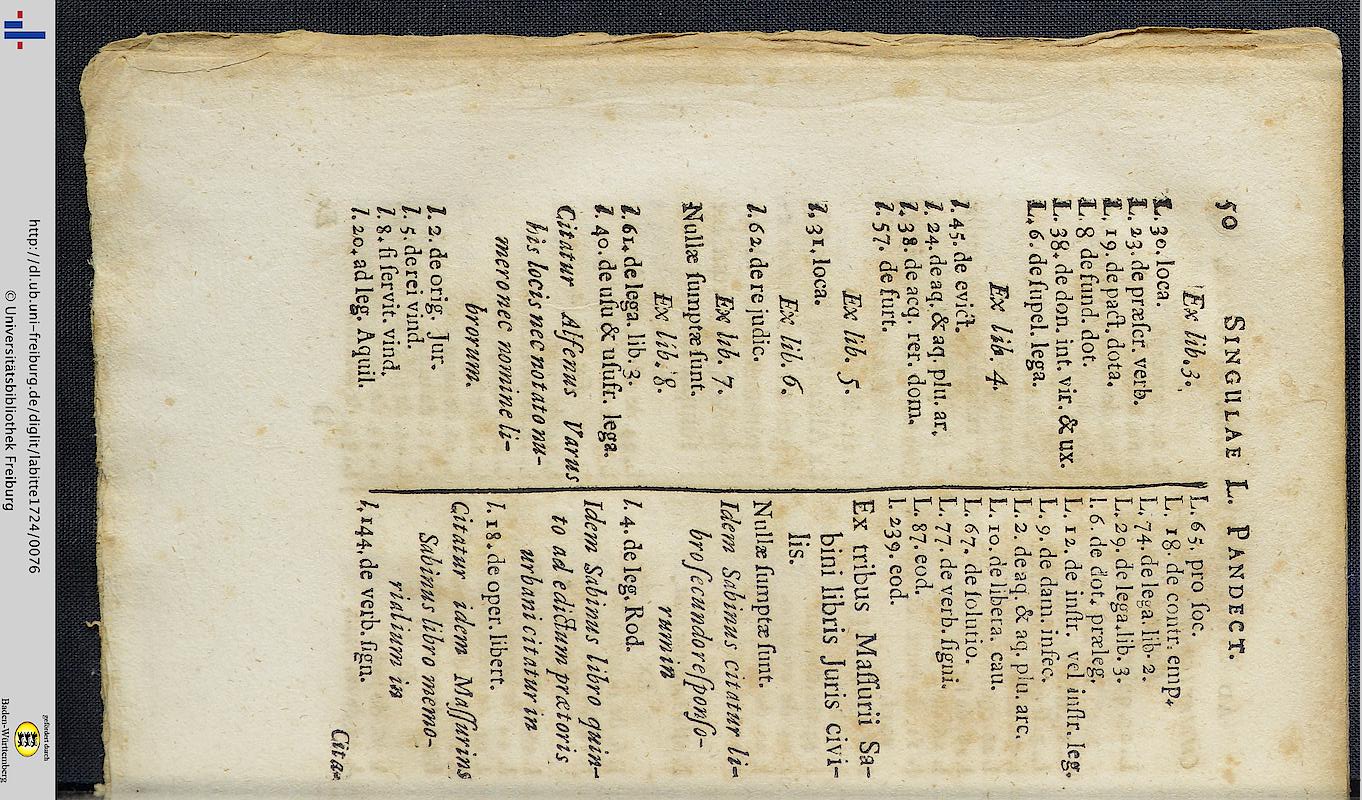 50 SINGULAE L. PANDECT.
Ex lib. 3.
L. 30. loca.
L. 23. de præſcr. verb.
L. 19. de pact. dota.
L. 8. de fund. dot.
L. 38. de don. int. vir. & ux.
L. 6. de ſupel. lega.
Ex lib. 4.
l. 45. de evict.
l. 24. de aq. & aq. plu. ar.
l. 38. de acq. rer. dom.
l. 57. de furt.
Ex lib. 5.
l. 31. loca.
Ex lib. 6.
l. 62. de re judic.
Ex lib. 7.
Nullæ ſumptæ ſunt.
Ex lib. 8.
l. 61. de lega. lib. 3.
l. 40. de uſu & uſufr. lega.
Citatur Alfenus Varus
his locis nec notato nu-
mero nec nomine li-
brorum.
l. 2. de orig. Jur.
l. 5. de rei vind.
l. 8. ſi ſervit. vind.
l. 20. ad leg. Aquil.
L. 65. pro ſoc.
L. 18. de contr. emp.
L. 74. de lega. lib. 2.
L. 29. de lega. lib. 3.
l. 6. de dot. præleg.
L. 12. de inſtr. vel inſtr. leg.
L. 9. de dam. infec.
L. 2. de aq. & aq. plu. arc.
L. 10. de libera. cau.
L. 67. de ſolutio.
L. 77. de verb. ſigni.
L. 87. eod.
l. 239. eod.
Ex tribus Maſſurii Sa-
bini libris Juris civi-
lis.
Nullæ ſumptæ ſunt.
Idem Sabinus citatur li-
bro ſecundo reſponſo-
rum in
l. 4. de leg. Rod.
Idem Sabinus libro quin-
to ad edictum prætoris
urbani citatur in
l. 18. de oper. libert.
Citatur idem Maſſurius
Sabinus libro memo-
rialium in
l. 144. de verb. ſign.
Cita-
http://dl.ub.uni-freiburg.de/diglit/labitte1724/0076
© Universitätsbibliothek Freiburg
gefördert durch
Baden-Württemberg